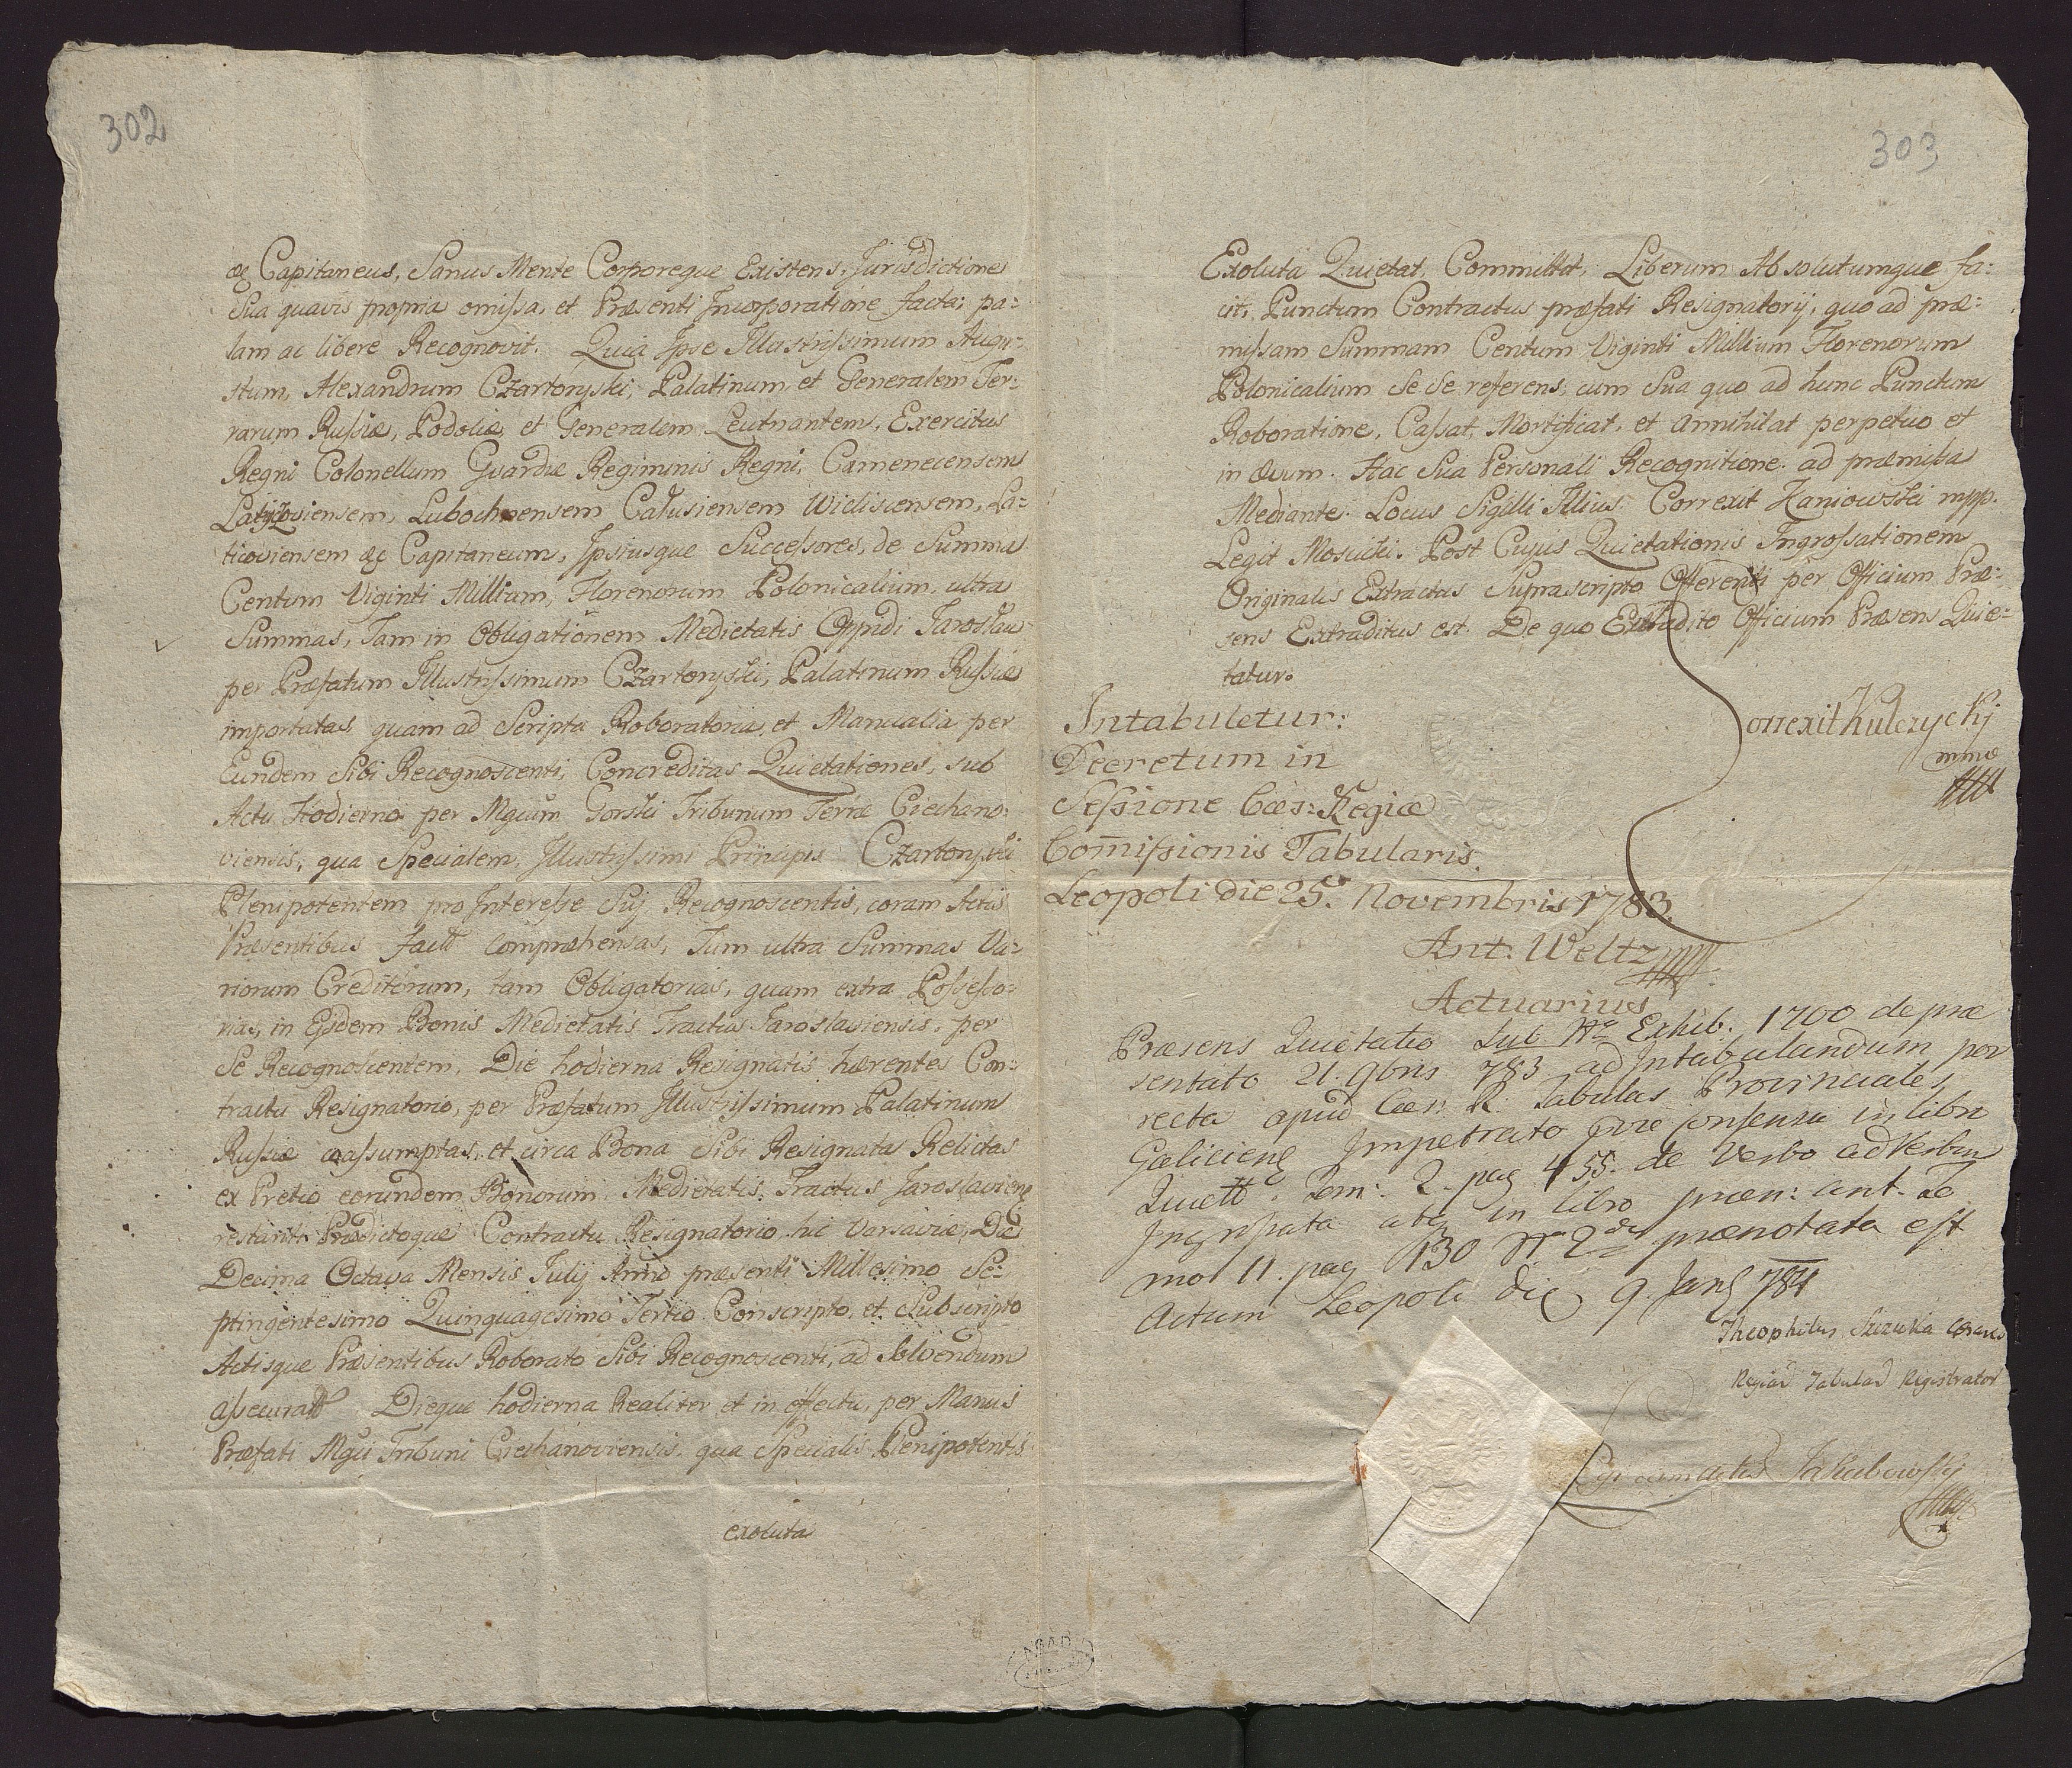 302
&c Capitaneus, Sanus Mente Corporeque Existens, Jurisdictione
Sua quavis propria omissa, et Præsenti Incorporatione facta; pa:
lam ac libere Recognovit. Quia Ipse Illustrissimum Augu:
stum, Alexandrum Czartoryski, Palatinum et Generalem Ter:
rarum Russiæ, Podoliæ, et Generalem Leutnantem, Exercitus
Regni Colonellum Gvardiæ Regiminis Regni, Camenecensem
Latyczoviensem, Lubochnensem Calusiensem Wieliscensem, La:
ticoviensem &c Capitaneum, Ipsiusque Successores, de Summa
Centum Viginti Millium, Florenorum Polonicalium, ultra
Summas, Tam in Obligationem Medietatis Oppidi Jaroslau
per Præfatum Illustrissimum Czartoryski, Palatinum Russiæ
importatas, quam ad Scripta Roboratoria, et Manualia per
Eundem Sibi Recognoscenti, Concreditas Quietationes, sub
Actu Hodierno per Mgcum Gorski Tribunum Terræ Ciechano:
viensis, qua Specialem, Illustrissimi Principis Czartoryski
Plenipotentem pro Interesse Sui Recognoscentis, coram Actis
Præsentibus factt compræhensas, Tum ultra Summas Va:
riorum Creditorum, tam Obligatorias, quam extra Possesso:
rias, in Ejsdem Bonis Medietatis Tractus Jaroslaviensis, per
Se Recognoscentem, Die hodierna Resignatis hærentes Con:
tractu Resignatorio, per Præfatum Illustrissimum Palatinum
Russiæ assumptas, et circa Bona Sibi Resignata Relictas
ex Pretio eorundem Bonorum Medietatis Tractus Jaroslaviens
restanti Prædictoque Contractu Resignatorio, hic Varsaviæ, Die
Decima Octava Mensis Julij Anno præsenti Millesimo Se:
ptingentesimo Quinquagesimo Tertio Conscripto, et Subscripto
Actisque Præsentibus Roborato Sibi Recognoscenti, ad Solvendum
assecuratt Dieque hodierna Realiter et in effectu, per Manus
Præfati Mgci Tribuni Ciechanoviensis qua Specialis Plenipotentis
exoluta
303
Exoluta Quietat, Committit, Liberum Absolutumque fa:
cit, Punctum Contractus præfati Resignatorij, quo ad præ:
missam Summam Centum Viginti Millium Florenorum
Polonicalium Se Se referens, cum Sua quo ad hunc Punctum
Roboratione, Cassat, Mortificat, et annihilat perpetuo et
in ævum. Hac Sua Personali Recognitione ad præmissa
Mediante. Locus Sigilli Illius. Correxit Haniowski mpp.
Legit Moscicki. Post Cujus Quietationis Ingrossationem
Originalis Extractus Suprascripto Offerenti per Officium Præ:
sens Extraditus est. De quo Extradito Officium Præsens Quie:
tatur.
Correxit Kulczyckj
mme
Intabuletur:
Decretum in
Sessione Cæs: Regiæ
Com̄issionis Tabularis.
Leopoli die 25. Novembris 1783.
Ant. Weltz
Actuarius
Præsens Quietatio Sub Nro Exhib. 1700 de præ
sentato 21. 9bris 783 ad Intabulandum por
recta apud Cæs: R. Tabulas Provinciales
Galiciens Impetrato prævie consensu in libr
Quiett. Tom: 2. pag 455. de Verbo ad Verbum
Ingrossata atq in libro præn: ant. To
mo 11. pag 130 Nr 2do prænotata est
Actum Leopoli die 9. Janr 784
Regiar Tabular Registrator
cum actis Jakubowski